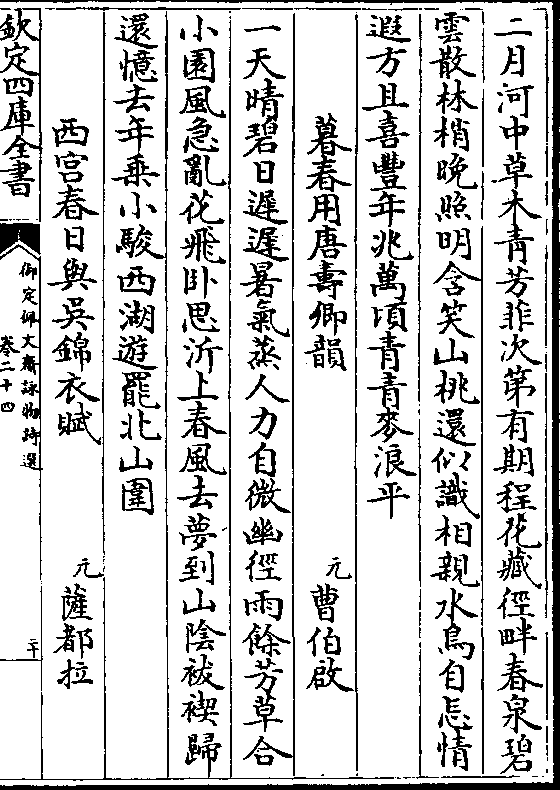 二月河中草木青芳菲次第有期程花藏徑畔春泉碧
雲散林梢晚照明含笑山桃還似識相親水鳥自忘情
遐方且喜豐年兆萬頃青青麥浪平
暮春用唐壽卿韻 元 曹伯啟
一天晴碧日遲遲暑氣蒸人力自微幽徑雨餘芳草合
小園風急亂花飛卧思沂上春風去夢到山陰祓禊歸
還憶去年乗小駿西湖遊罷北山圍
西宮春日與吳錦衣賦 元 薩都拉
欽定四庫全書
御定佩文齋詠物詩選
卷二十四
二十